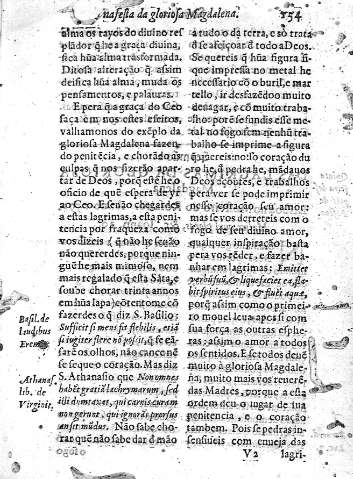 na festa da gloriosa Magdalena. 154
alma os rayos do diuino res
plãdor q̃ he a graça diuina,
fica hũa alma trasformada.
Ditosa alteração q̃ assim
deifica hũa alma, muda os
pensamentos, e palauras.
E pera q̃ a graça do Ceo
faça em nos estes efeitos,
valhamonos do exẽplo da
gloriosa Magdalena fazen
do penitẽcia, e chorãdo as
culpas q̃ nos fizerão apar-
tar de Deos, porq̃ este he o
oficio de que espera de yr
ao Ceo. E se não chegardes
a estas lagrimas, a esta peni
tencia por fraqueza como
vos dizeis (q̃ não he senão
não quererdes, porque nin-
guẽ he mais mimoso, nem
mais regalado q̃ esta Sãta, e
soube chorar trinta annos
em hũa lapa) cõtentome cõ
fazerdes o q̃ diz S. Basilio:
Sufficit si mens sit flebilis, etiã
si iugiter flere nõ possit, q̃ se cã-
sarẽ os olhos, não canse nẽ
se seque o coração. Mas diz
S. Athanasio que Non omnes
habẽt gratiã lachrymarum, sed
illi dumtaxat, qui carnis curam
non gerunt, qui ignorãt prorsus
an sit mũdus. Não sabe cho-
rar quẽ não sabe dar de mão
Basil. de
laudibus
Eremi.
Athanas.
lib. de
Virginit.
a tudo o da terra, e só trata
de se afeiçoar a todo a Deos.
Se quereis q̃ hũa figura fi-
que impressa no metal he
necessario cõ o buril, e mar
tello, ir desfazẽdo muito
de vagar, e cõ muito traba-
lho: porẽ se fundis esse me-
tal no fogo sem nenhũ tra-
balho se imprime a figura
q̃ quereis: no so coração du
ro he, q̃ de pedra he, mãdauos
Deos açoutes, e trabalhos
pera ver se pode imprimir
nesse coração seu amor:
mas se vos derretereis com o
fogo de seu diuino amor,
qualquer inspiração basta
pera vos rẽder, e fazer ba-
nhar em lagrimas: Emittet
verbũ suũ, & liquefaciet ea, fla-
bit spiritus eius, & fluẽt aquæ,
porq̃ assim como o primei-
ro mouel leua apos si com
sua força as outras esphe-
ras: assim o amor a todos
os sentidos. E se todos deuẽ
muito à gloriosa Magdale-
na, muito mais vos reuerẽ-
das Madres, porque a esta
ordem deu o lugar de sua
penitencia, e o coração
tambem. Pois se pedras in-
sensiueis com enueja das
V 2 lagri-